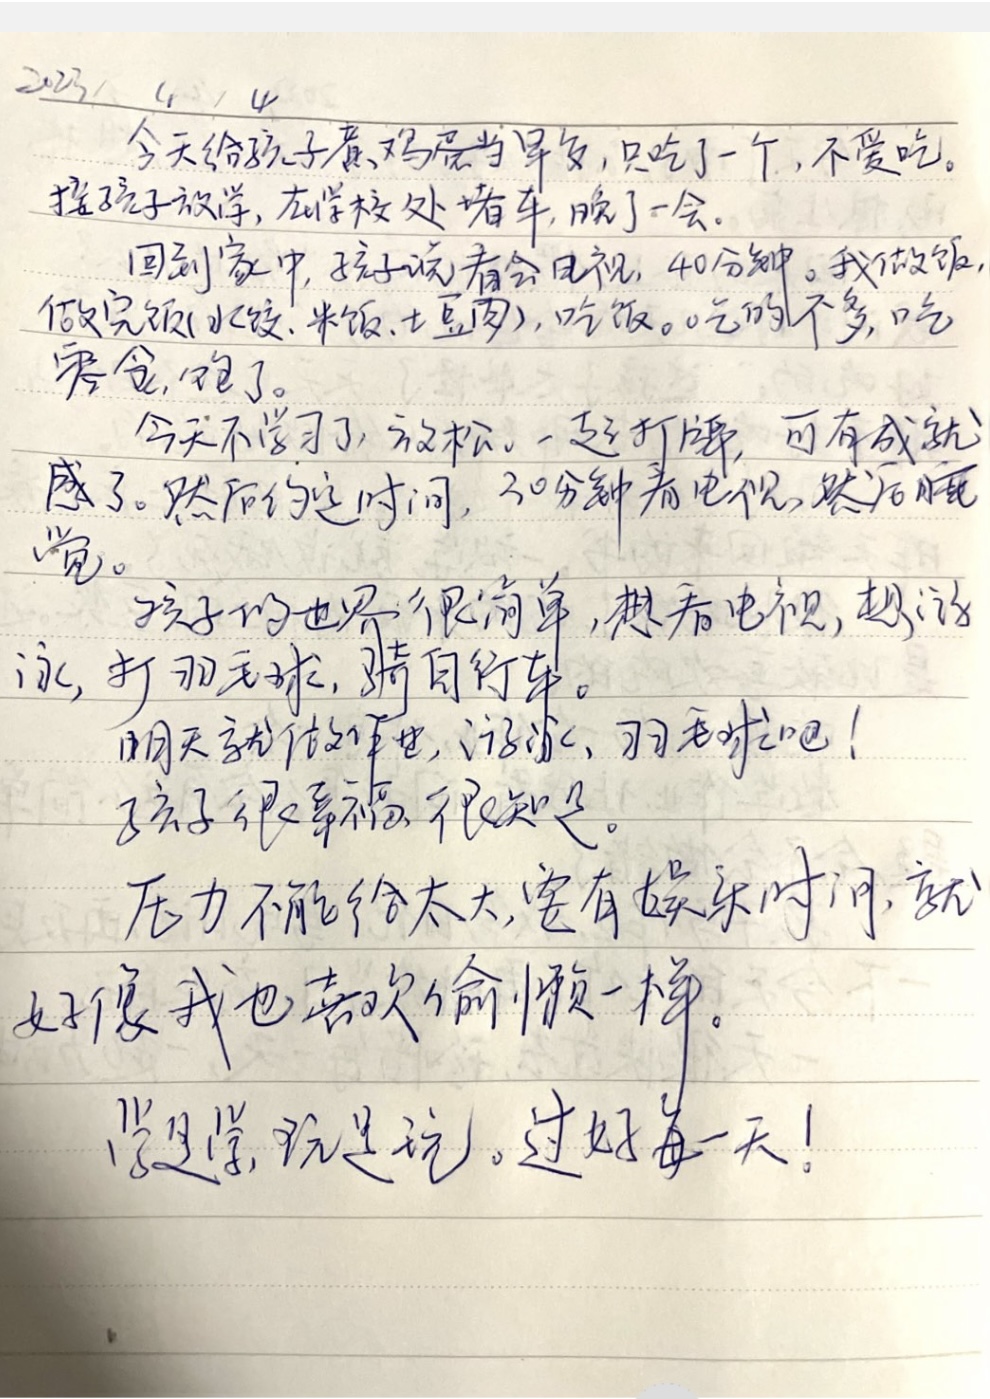 2023, 4, 4
今天给孩子煮鸡蛋当早饭,只吃了一个,不爱吃。
接孩子放学,在学校处堵车,晚了一会。
回到家中,孩子说看会电视,40分钟。我做饭,
做完饭(水饺、米饭、土豆肉),吃饭。吃的不多,吃
零食,饱了。
今天不学习了,放松。一起打牌,可有成就
感了。然后约定时间,30分钟看电视,然后睡
觉。
孩子的世界很简单,想看电视,想游
泳,打羽毛球,骑自行车。
明天就做作业,游泳、羽毛球吧!
孩子很幸福,很知足。
压力不能给太大,要有娱乐时间,就
好像我也喜欢偷懒一样。
学是学,玩是玩。过好每一天!